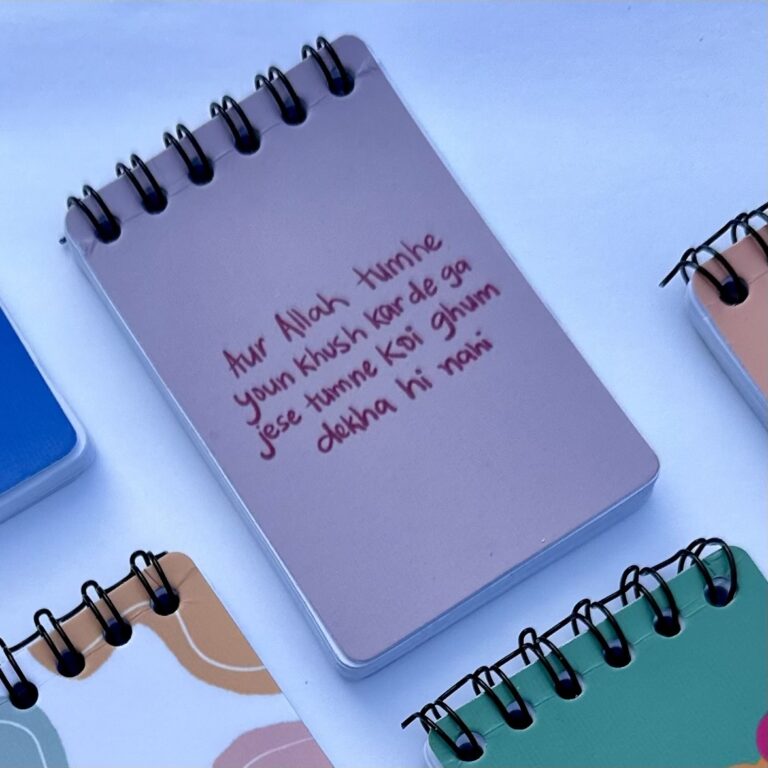 Aur Allah tumhe
youn khush kar de ga
jese tumne koi ghum
dekha hi nahi